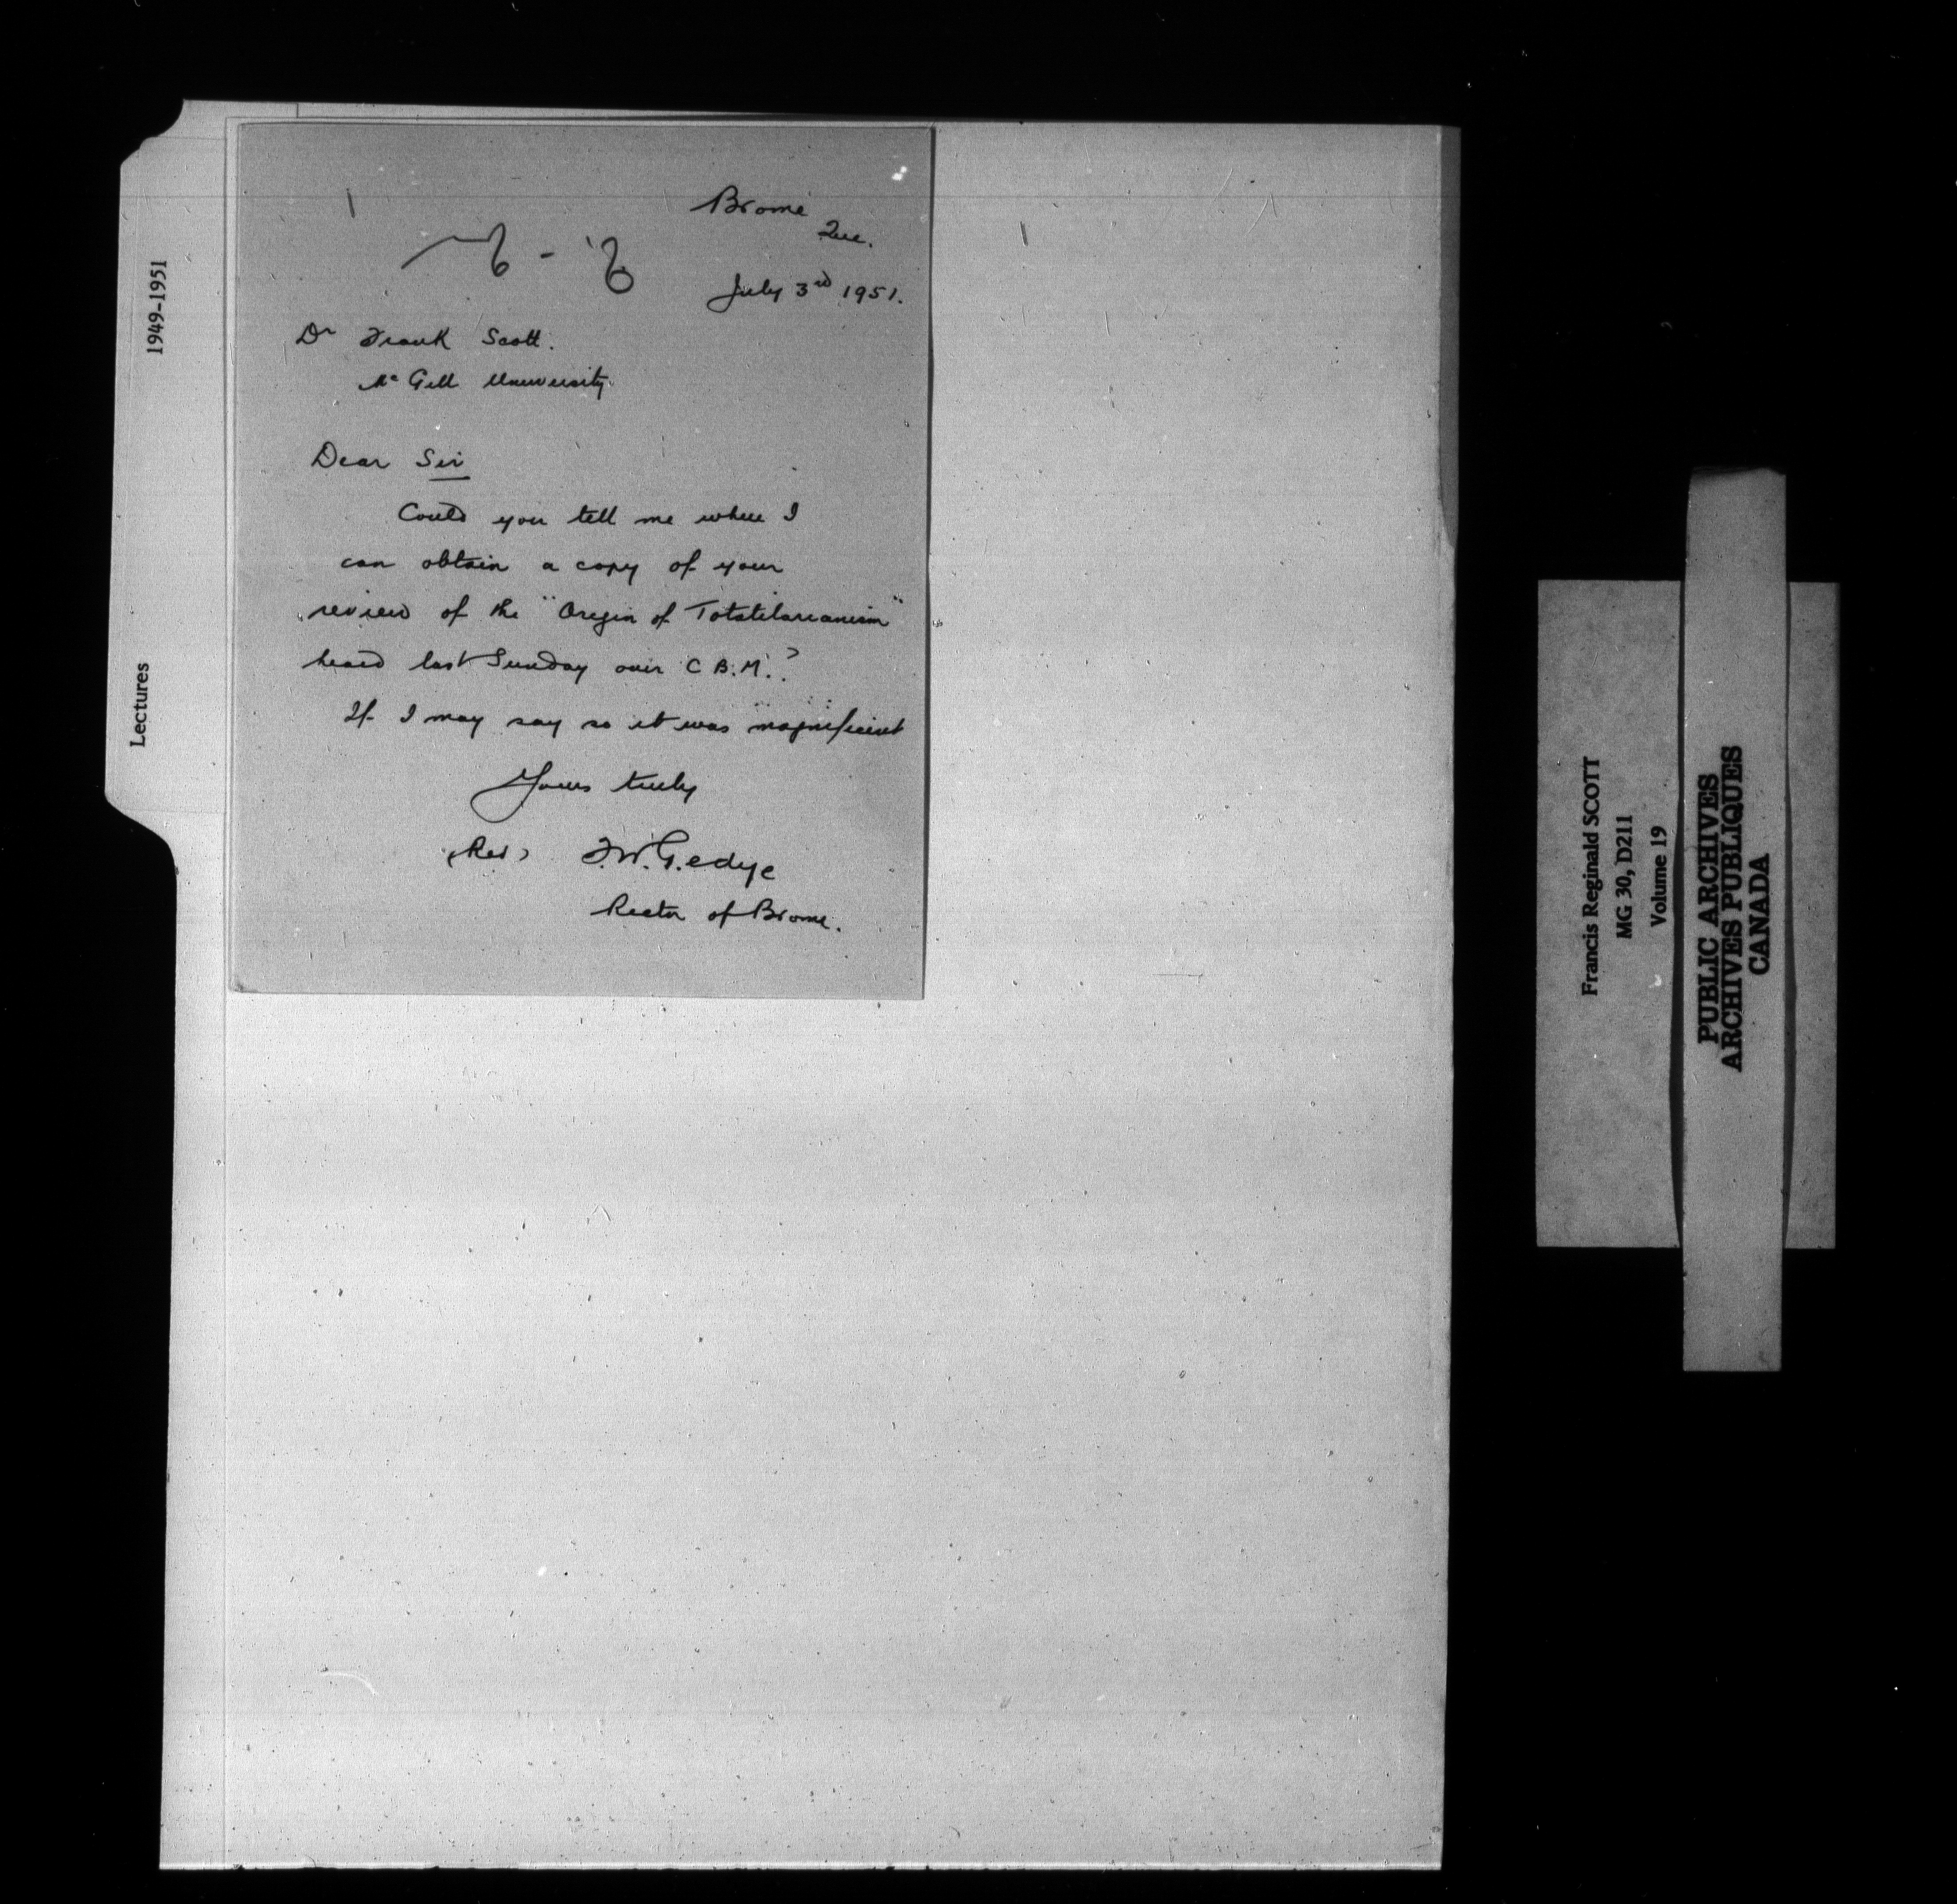 Brome
Que.
July 3rd 1951.
Dr Frank Scott.
Mc Gill University.
Dear Sir
Could you tell me where I
can obtain a copy of your
review of the "Origin of Totatilarianism"
heard last Sunday over C B.M.?
If I may say so it was magnificent
Yours truly
(Rev) F.W. Gedye
Rector of Brome.
1949-1951
Lectures
Francis Reginald SCOTT
MG 30, D211
Volume 19
PUBLIC ARCHIVES
ARCHIVES PUBLIQUES
CANADA